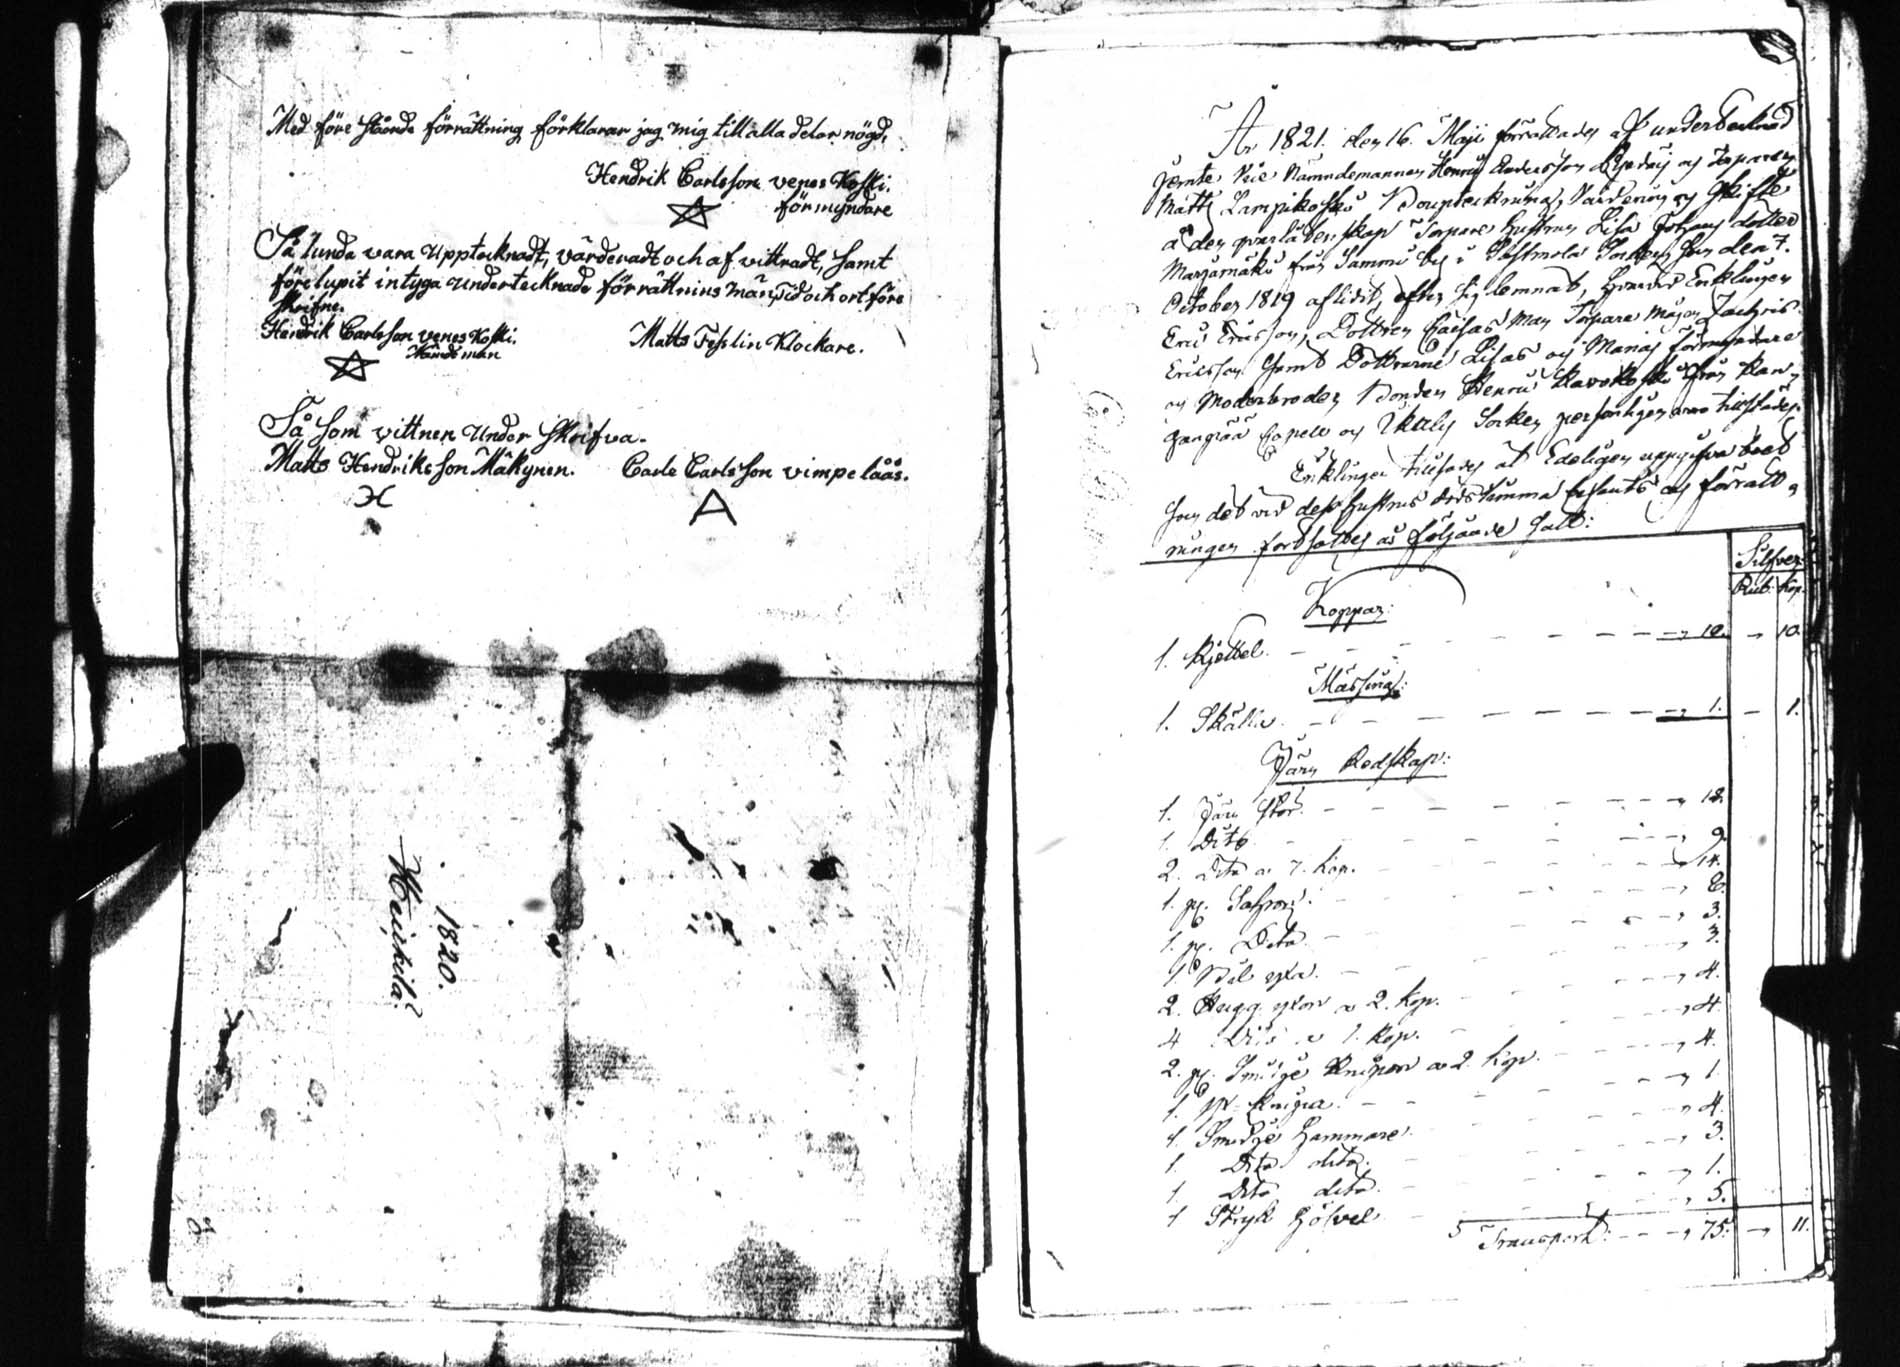 Med före stående förrättning förklarar jag mig till alla delar nögd,
Hendrik Carlsson venes Koski.
förmyndare
Så lunda vara Upptecknadt, värderadt och af vittradt, samt
förelupit intyga undertecknade förrättnins män, Tid och ort före
skrifne.
Hendrik Carlsson venes Koski.
Nämdeman
Matts Fesslin Klockare.
Så Som vittnen Under Skrifva.
Matts Hendriksson Mäkynen. Carle Carlsson vimpelåås.
1820.
Heickilä
År 1821. den 16. Maji förrättades af undertecknad
jemte Vice Nämndemannen Henric Andersson och Torparen
Matts Lampikoski Boupteckning, Värdering och Skifte
å den qvarlåtenskap Torpare Hustrun Lisa Johans dotter
Marjamäki från Sammi by i Sastmola Socken, som den 7.
October 1819 aflidit, efter sig lemnat, hvarvid Enklingen
Eric Ericsson, Dottren Caisas Man Torpare Zachris
Ericsson samt Döttrarne Lisas och Marias förmyndare
och Moderbroder Bonden Henric från Kan-
Capell och Socken personligen voro tillstädes.
Enklingen tillsades at Edeligen uppgifva boet
som det vid dess Hustrus dödstimma befants och förrätt-
ningen fortsattes på följande sätt:
Silfver
Rub: Kop.
Koppar:
1. Kjettel. 10. 10.
Mässing:
1. Skälla. 1. 1.
Järn Redskap:
1. Järn stör. 12.
1. Dito 9.
2. Dito a 7. Kop. 14.
1. pr. 8.
1. pr. Dito 3.
1. Bil yxa. 3.
2. Hugg yxor a 2. Kop. 4.
4 Dito a 1. Kop. 4.
2. pr. Smidge Kniper a 2. Kop. 4.
1. Knipa. 1.
1. Smidge Hammare. 4.
1. Dito dito. 3.
1. Dito dito. 1.
1 Stryk Höfvel 5.
Transport: 75. 11.